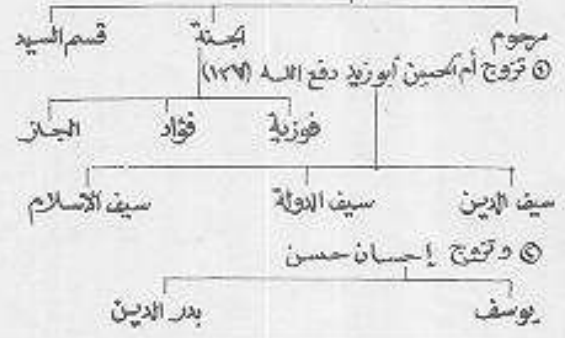 مرجوم الجنة قسم السيد
① تزوج أم الحسين أبوزيد دفع الله (١٣٦٧)
فوزية فؤاد الجاز
سيف الدين سيف الدولة سيف الاسلام
② وتزوج إحسان حسن
يوسف بدر الدين